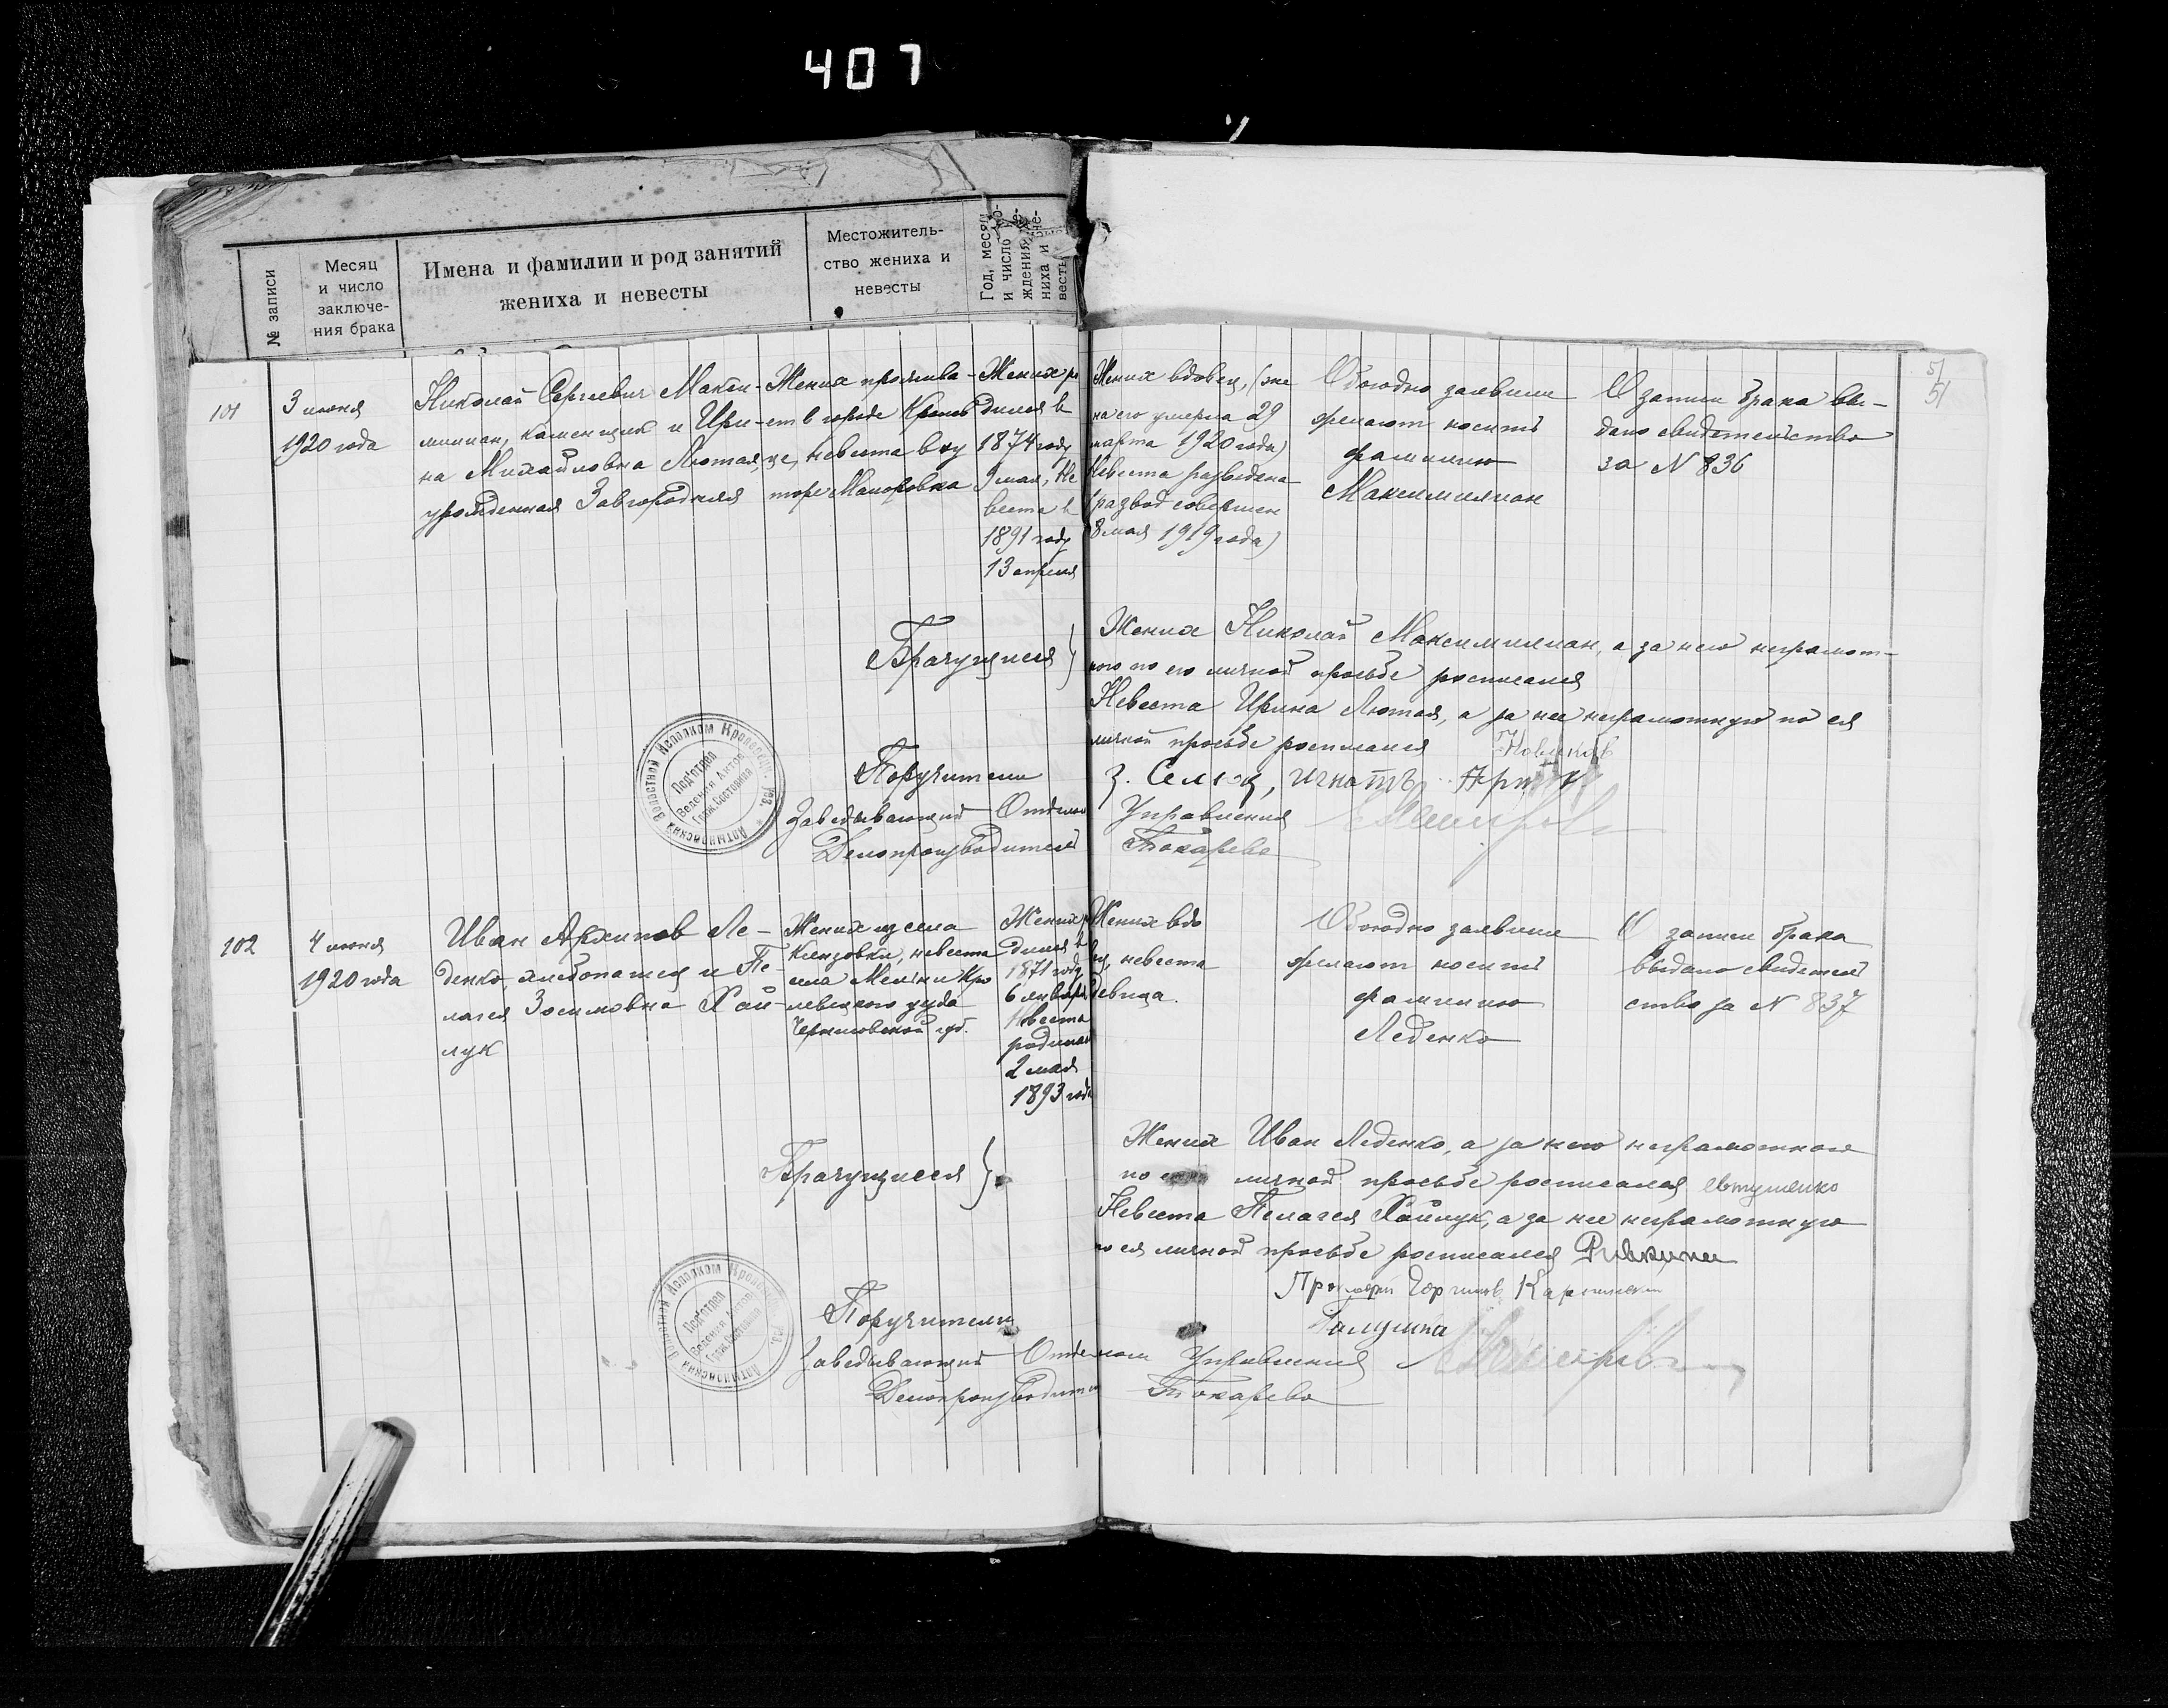 407
51
51
№ записи
Месяц
и число
заключе-
ния брака
Имена и фамилии и род занятий
жениха и невесты
Местожитель-
ство жениха и
невесты
Год, месяц
и число
ждения
ниха и
весты
101
3 июня
1920 года
Николай Сергеевич Макси-
милиан, каменщик и Ири-
на Михайловна Лютая,
урожденная Завгородняя
Жених прожива-
ет в городе Кролев
це, невеста в ху
торе Макоровка
Жених ро
дился в
1874 году
9 мая, Не
веста в
1891 году
13 апреля
Жених вдовец, (же
на его умерла 29
марта 1920 года)
Невеста разведена
(развод совершен
8 мая 1919 года)
Обоюдно заявили
желают носить
фамилию
Максимилиан
О записи брака вы-
дано свидетельство
за N 836
Брачущиеся }
Жених Николай Максимилиан, а за него неграмот-
ного по его личной просьбе росписался
Невеста Ирина Лютая, а за нее неграмотную по ея
личной просьбе росписался Новиков
Поручители
Игнатъ
Заведывающий Отделом Управления
Делопроизводитель Токарева
Волостной Исполком Кролевец. уез.
Под'отдел
Ведения Актов
Граж. Состояния
102
4 июня
1920 года
Иван Архипов Ле-
денко, хлебопашец и Пе-
лагея Зосимовна Хай-
лук
Жених из села
Клезовки, невеста
села Мельни Кро
левецкого уезда
Черниговской губ.
Жених ро
дился в
1871 году
6 января
Невеста
родилась
2 мая
1893 года
Жених вдо
вец, невеста
девица.
Обоюдно заявили
желают носить
фамилию
Леденко
О записи брака
выдано свидетель
ство за N 837
Брачущиеся }
Жених Иван Леденко, а за него неграмотного
по его личной просьбе росписался Евтушенко
Невеста Пелагея Хайлук, а за нее неграмотную
по ея личной просьбе росписался
Поручители
Галушка
Заведывающий Отделом Управления
Делопроизводитель Токарева
Исполком
Под'отдел
Ведения Актов
Граж. Состояния